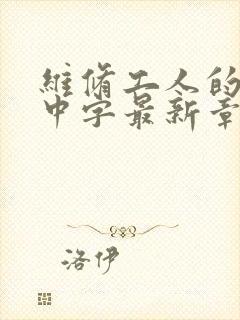 維脩工人的
中字最新章
洛伊